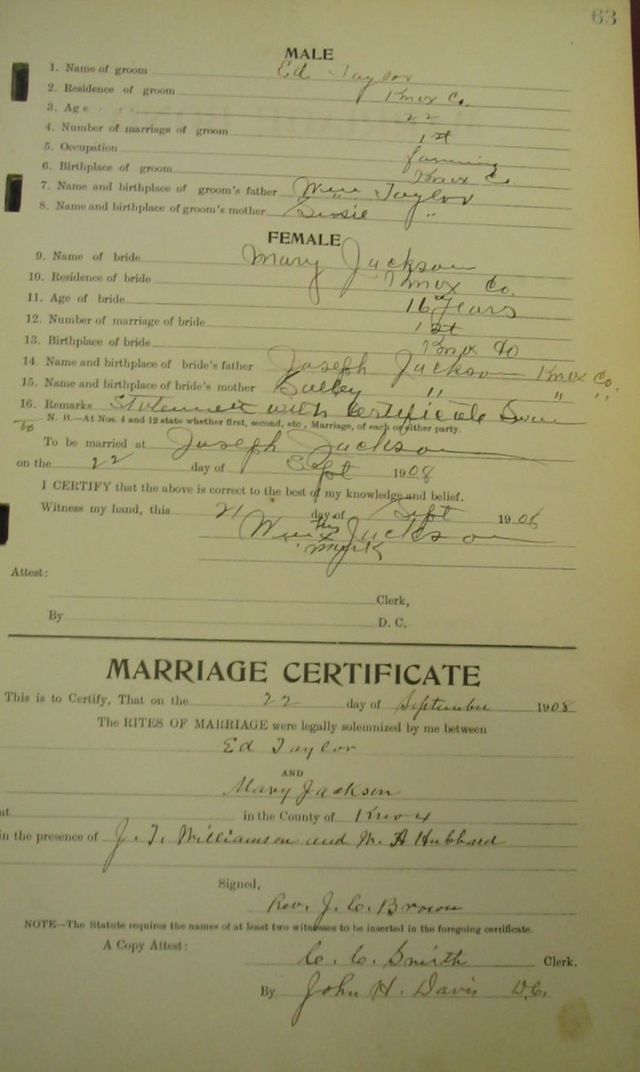 63
MALE
1. Name of groom Ed Taylor
2. Residence of groom Knox Co.
3. Age 22
4. Number of marriage of groom 1st
5. Occupation farming
6. Birthplace of groom Knox Co
7. Name and birthplace of groom's father Wm Taylor
8. Name and birthplace of groom's mother Susie "
FEMALE
9. Name of bride Mary Jackson
10. Residence of bride Knox Co.
11. Age of bride 16 Years
12. Number of marriage of bride 1st
13. Birthplace of bride Knox Co
14. Name and birthplace of bride's father Joseph Jackson Knox Co.
15. Name and birthplace of bride's mother Salley " " "
16. Remarks Statement with Certificate
N. B.—At Nos. 4 and 12 state whether first, second, etc., Marriage, of each or either party.
To be married at Joseph Jackson
on the 22 day of Sept 1908
I CERTIFY that the above is correct to the best of my knowledge and belief.
Witness my hand, this 21 day of Sept 1908
his
Jackson
mark
Attest:
Clerk,
By D. C.
MARRIAGE CERTIFICATE
This is to Certify, That on the 22 day of September 1908
The RITES OF MARRIAGE were legally solemnized by me between
Ed Taylor
AND
Mary Jackson
at in the County of Knox
in the presence of J. T. Williamson and M. A Hubbard
Signed,
Rev. J. C. Brown
NOTE—The Statute requires the names of at least two witnesses to be inserted in the foregoing certificate.
A Copy Attest:
C. C. Smith Clerk.
By John H. Davis D.C.